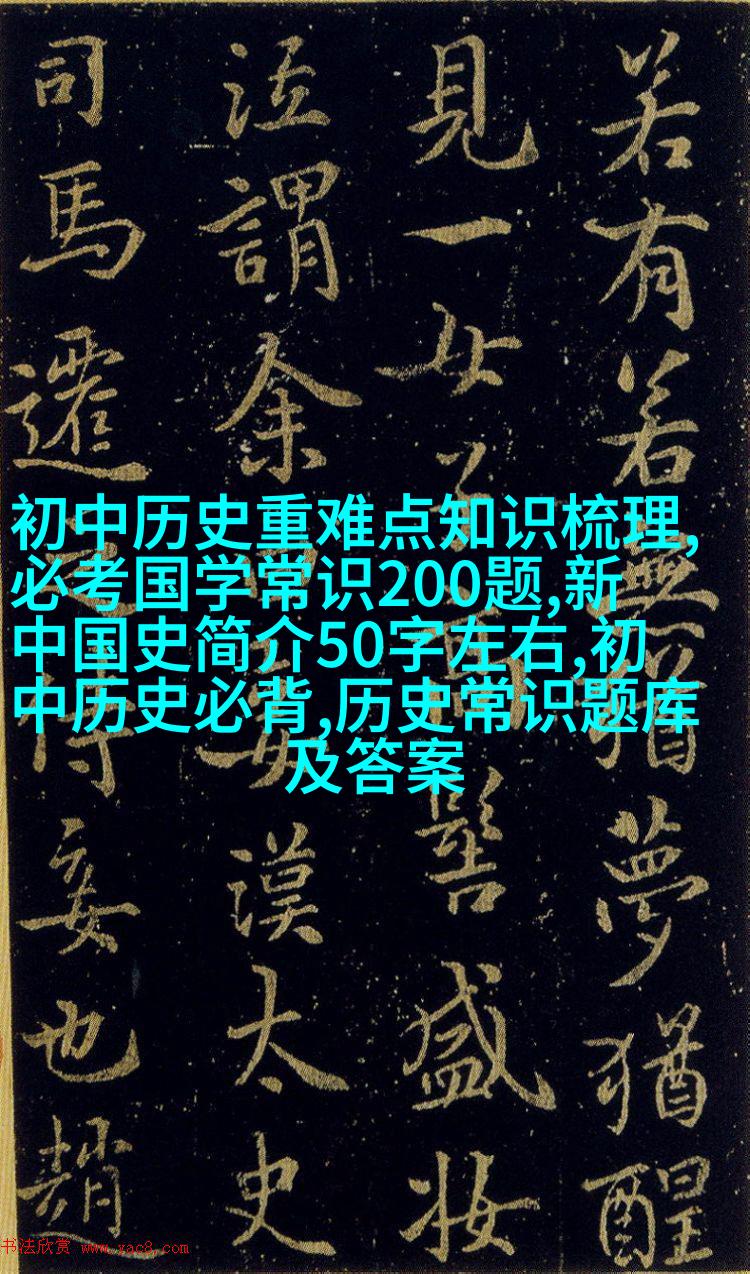 若有若無猶夢猶醒
見一女子高髻盛妝
泣謂余妾漢太史
司馬遷之侍妾也趙
初中历史重难点知识梳理,
必考国学常识200题,新
中国史简介50字左右,初
中历史必背,历史常识题库
及答案
书法欣赏 www.yac8.com